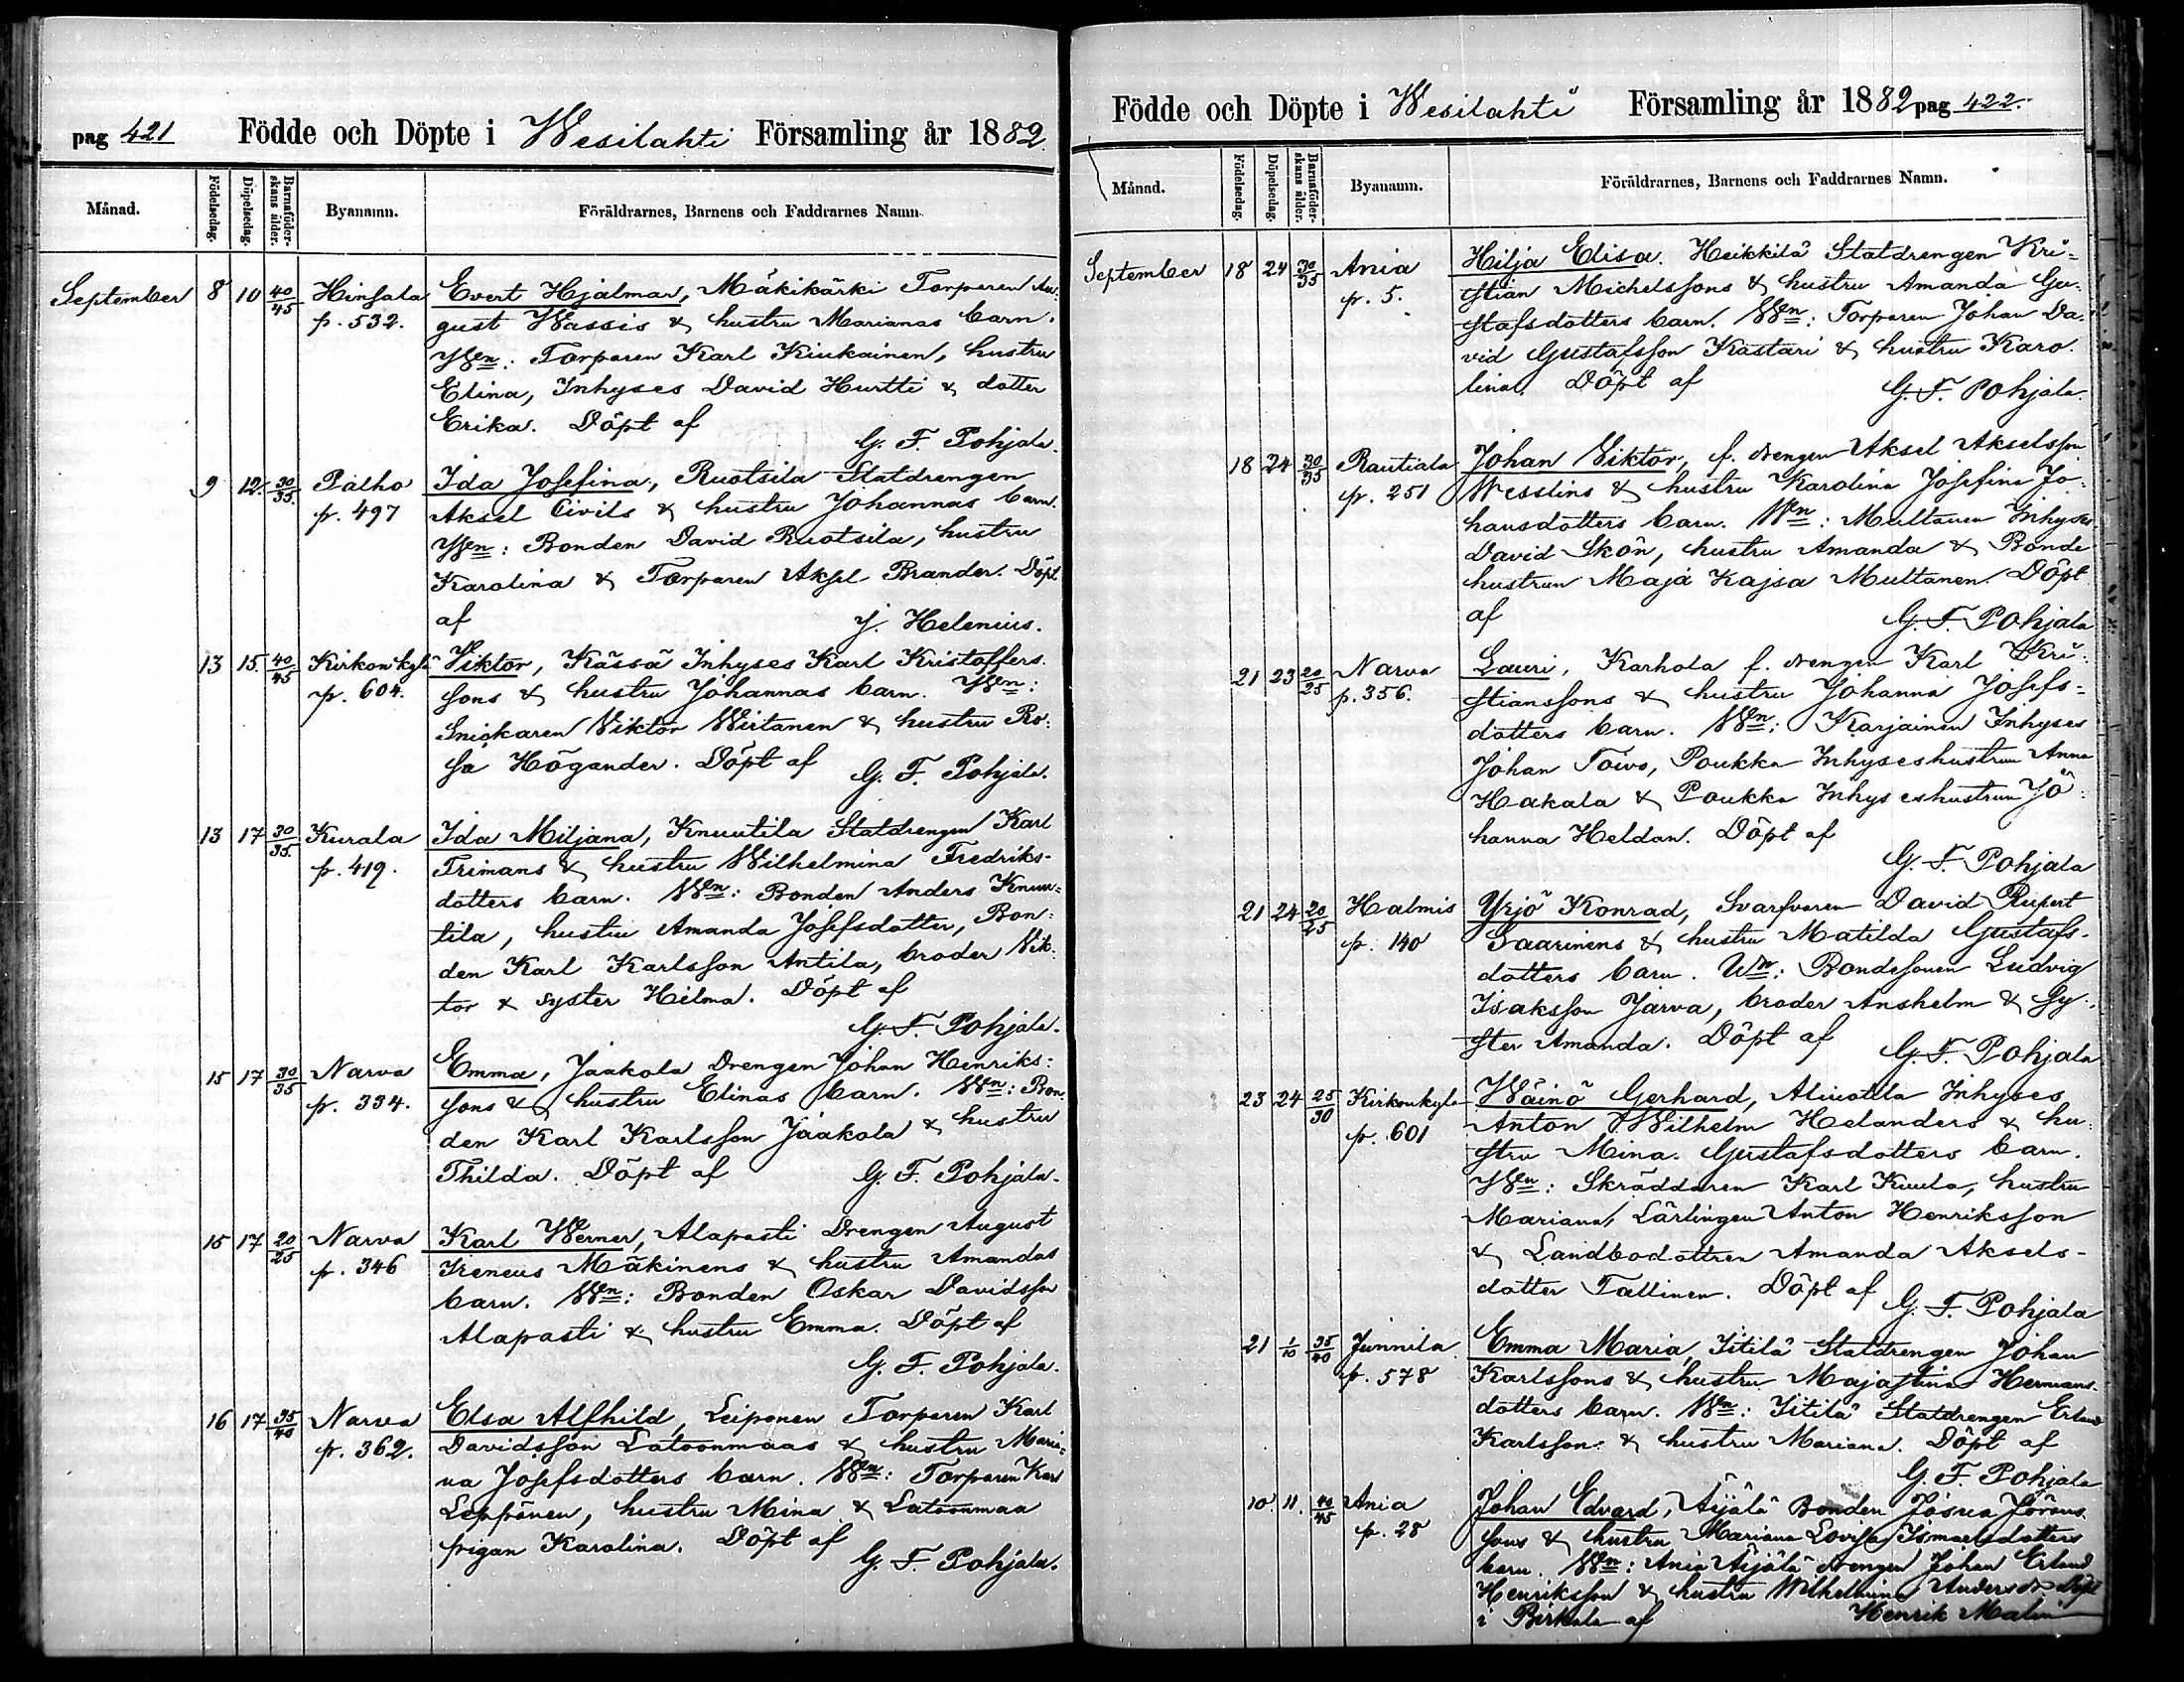 pag 421 Födde och Döpte i Wesilahti Församling år 1882
Månad. Födelsedag. Döpelsedag. Barnaföderskans ålder. Byanamn. Föräldrarnes, Barnens och Faddrarnes Namn.
September 8 10 40/45 Hinsala Evert Hjalmar, Mäkikärki Torparen Au-
p. 532. gust Wassis & hustru Marianas barn.
Wn: Torparen Karl Kiukainen, hustru
Elina, Inhyses David Hurtti & dotter
Erika. Döpt af
G. F. Pohjala.
9 12. 30/35. Palho Ida Josefina, Ruotsila Statdrengen
p. 497 Aksel Civils & hustru Johannas barn.
Wn: Bonden David Ruotsila, hustru
Karolina & Torparen Aksel Brander. Döpt
af J. Helenius.
13 15. 40/45 Kirkonkylä Viktor, Kässä Inhyses Karl Kristoffers-
p. 604. sons & hustru Johannas barn. Wn:
Snickaren Viktor Wirtanen & hustru Ro-
sa Högander. Döpt af G. F. Pohjala.
13 17 30/35. Kurala Ida Miljana, Knuutila Statdrengen Karl
p. 419. Trimans & hustru Wilhelmina Fredriks-
dotters barn. Wn: Bonden Anders Knuu-
tila, hustru Amanda Josefsdotter, Bon-
den Karl Karlsson Antila, broder Vik-
tor & syster Hilma. Döpt af
G. F. Pohjala.
15 17 30/35 Narva Emma, Jaakola Drengen Johan Henriks-
p. 334. sons & hustru Elinas barn. Wn: Bon-
den Karl Karlsson Jaakola & hustru
Thilda. Döpt af G. F. Pohjala.
15 17 20/25 Narva Karl Werner, Alapasti Drengen August
p. 346 Ireneus Mäkinens & hustru Amandas
barn. Wn: Bonden Oskar Davidsson
Alapasti & hustru Emma. Döpt af
G. F. Pohjala.
16 17 35/40 Narva Elsa Alfhild, Leiponen Torparen Karl
p. 362. Davidsson Latoonmaas & hustru Maria-
na Josefsdotters barn. Wn: Torparen Karl
Leppönen, hustru Mina & Latoonmaa
pigan Karolina. Döpt af
G. F. Pohjala.
Födde och Döpte i Wesilahti Församling år 1882 pag 422.
Månad. Födelsedag. Döpelsedag. Barnaföderskans ålder. Byanamn. Föräldrarnes, Barnens och Faddrarnes Namn.
September 18 24 30/35 Ania Hilja Elisa. Heikkilä Statdrengen Kri-
p. 5. stian Michelssons & hustru Amanda Gu-
stafsdotters barn. Wn: Torparen Johan Da-
vid Gustafsson Kastari & hustru Karo-
lina. Döpt af G. F. Pohjala.
18 24 30/35 Rautiala Johan Viktor, f. drengen Aksel Akselsson
p. 251 Wesslins & hustru Karolina Josefina Jo-
hansdotters barn. Wn: Multanen Inhyses
David Skön, hustru Amanda & Bonde
hustrun Maja Kajsa Multanen. Döpt
af G. F. Pohjala
21 23 20/25 Narva Lauri, Karhola f. drengen Karl Kri-
p. 356. stianssons & hustru Johanna Josefs-
dotters barn. Wn: Karjainen Inhyses
Johan Toivo, Poukka Inhyseshustrun Anna
Hakala & Poukka Inhyseshustrun Jo-
hanna Heldan. Döpt af
G. F. Pohjala
21 24 20/25 Halmis Yrjö Konrad, Svarfvaren David Rupert
p. 140 Saarinens & hustru Matilda Gustafs-
dotters barn. Wn: Bondesonen Ludvig
Isaksson Jarva, broder Anshelm & Sy-
ster Amanda. Döpt af G. F. Pohjala
23 24 25/30 Kirkonkylä Wäinö Gerhard, Alinotila Inhyses
p. 601 Anton Wilhelm Helanders & hu-
stru Mina Gustafsdotters barn.
Wn: Skräddaren Karl Kuula, hustru
Mariana, Lärlingen Anton Henriksson
& Landbodottren Amanda Aksels-
dotter Tallinen. Döpt af G. F. Pohjala
21 1/10 35/40 Junnila Emma Maria, Iitilä Statdrengen Johan
p. 578 Karlssons & hustru Majastina Hermans-
dotters barn. Wn: Iitilä Statdrengen Erland
Karlsson & hustru Mariana. Döpt af
G. F. Pohjala
10 11. 40/45 Ania Johan Edvard, Äijälä Bonden Josua Jörans-
p. 28 sons & hustru Mariana Lovisa Ismaelsdotters
barn. Wn: Ania Äijälä drengen Johan Erland
Henriksson & hustru Wilhelmina Andersdr Döpt
i Birkala af Henrik Malin